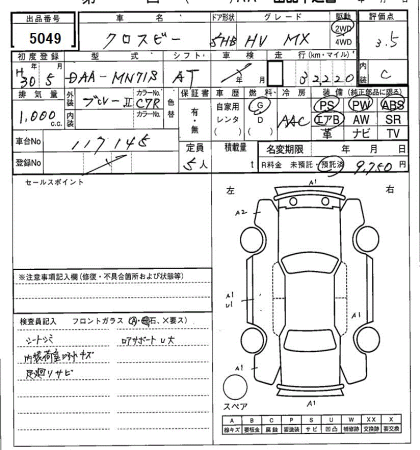 出品番号 車名 ドア形状 グレード 駆動 評価点
5049 クロスビー 5HB HV MX 2WD 4WD 3.5
初度登録 型式 シフト 車検 走行(km・マイル) 内装
H30年5月 DAA-MN71S AT 年 月 32,220 C
排気量 外装 カラーNo. 色替 保証書 車歴 燃料 冷房 装備(純正部品に限る)
1,000c.c. ブルーII C7R 有・無 自家用 G AAC PS PW ABS
内装 カラーNo. レンタ D エアB AW SR
車台No 117145 革 ナビ TV
定員 積載量 名変期限 年 月 日
登録No 5人 t R料金 未預託・預託済 9,750円
セールスポイント
左 右
A1
A2
A1
U1
A1
A1
A1
※注意事項記入欄(修復・不具合箇所および状態等)
検査員記入 フロントガラス(A・飛石、×要ス)
シートシミ コアサポートU大
内張荷室キズ
足廻リサビ
スペア
A B C P S U W XX X
線キズ 要板金 腐蝕 要塗装 サビ 凹凸 補修跡 交換跡 要交換